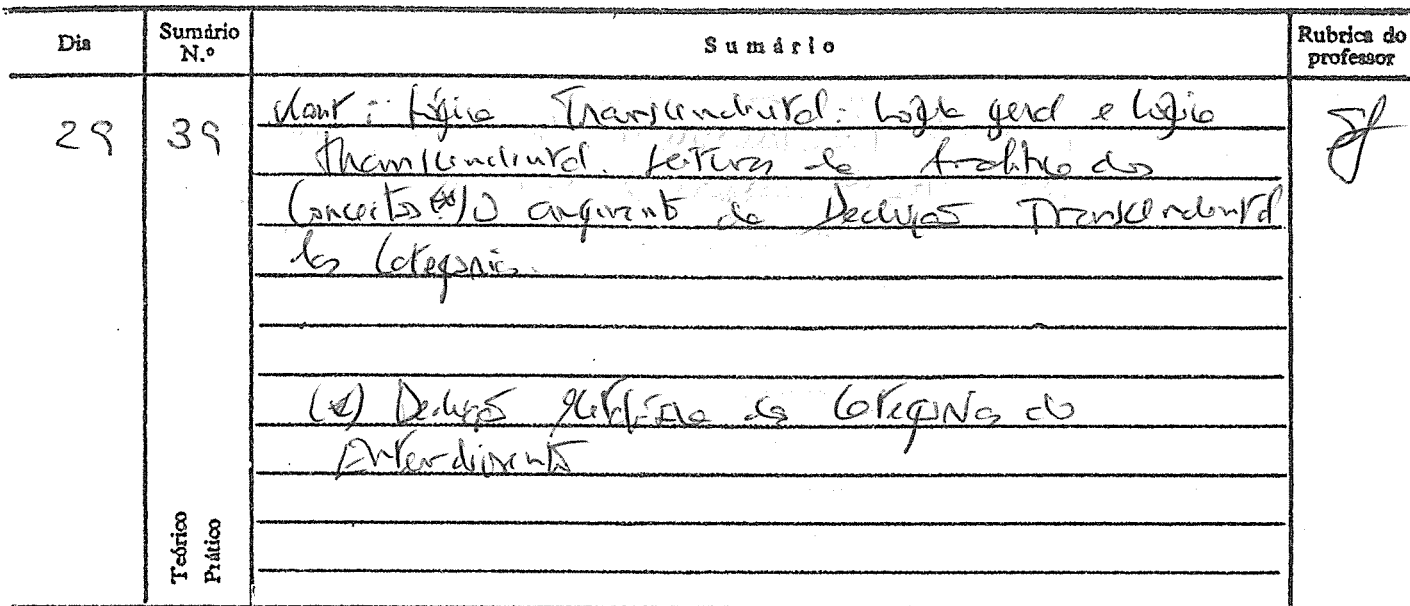 Dia
Sumário N.º
Sumário
Rubrica do professor
29
39
Kant: Lógica Transcendental: Lógica geral e Lógica
Transcendental. Leitura da Analítica dos
Conceitos (*) O argumento da Dedução Transcendental
das Categorias.
(*) Dedução Metafísica das Categorias do
Entendimento
Teórico
Prático